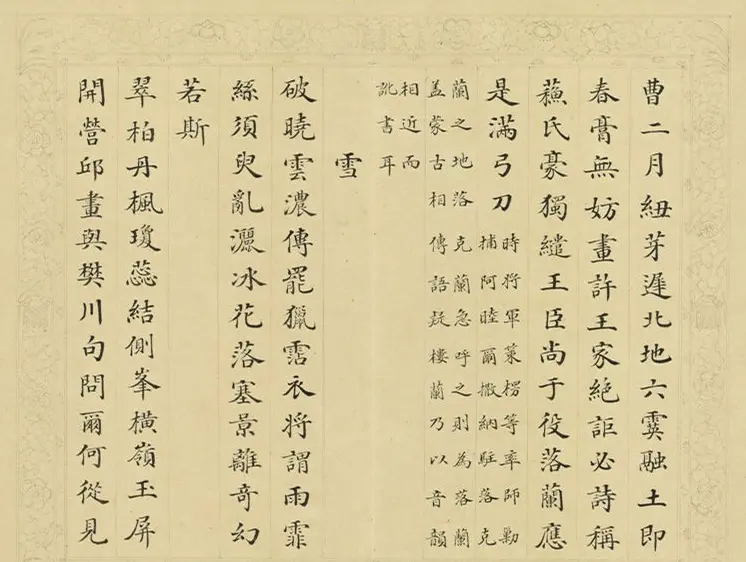 曹二月紐芽遲北地六霙融土即
春膏無妨畫許王家絕詎必詩稱
蘓氏豪獨繾王臣尚于役落蘭應
是滿弓刀
時將軍策楞等率師勦
捕阿睦爾撒納駐落克
蘭之地落克蘭急呼之則為落蘭
盖蒙古相傳語疑樓蘭乃以音韻
相近而
訛書耳
雪
破曉雲濃傳罷獵霑衣將謂雨霏
絲須臾亂灑冰花落塞景離奇幻
若斯
翠柏丹楓瓊蕊結側峯橫嶺玉屏
開營邱畫與樊川句問爾何從見